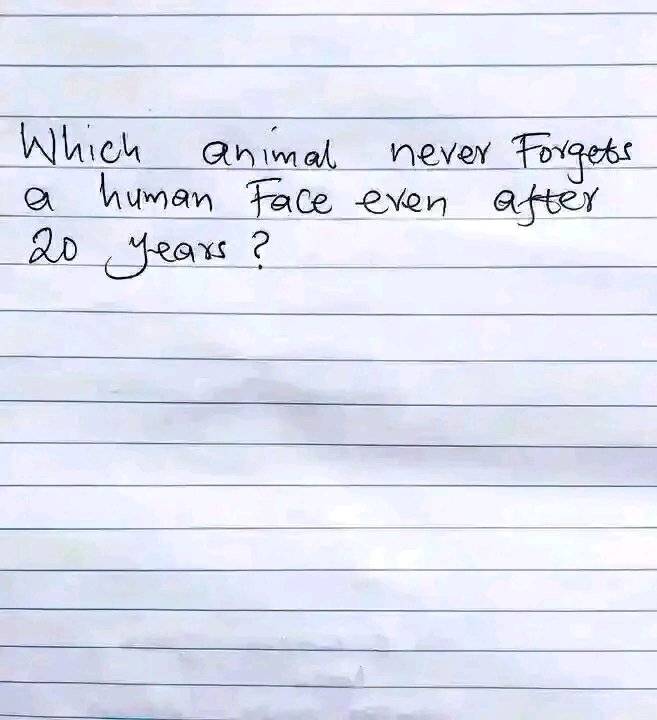 Which animal never Forgets
a human Face even after
20 years?